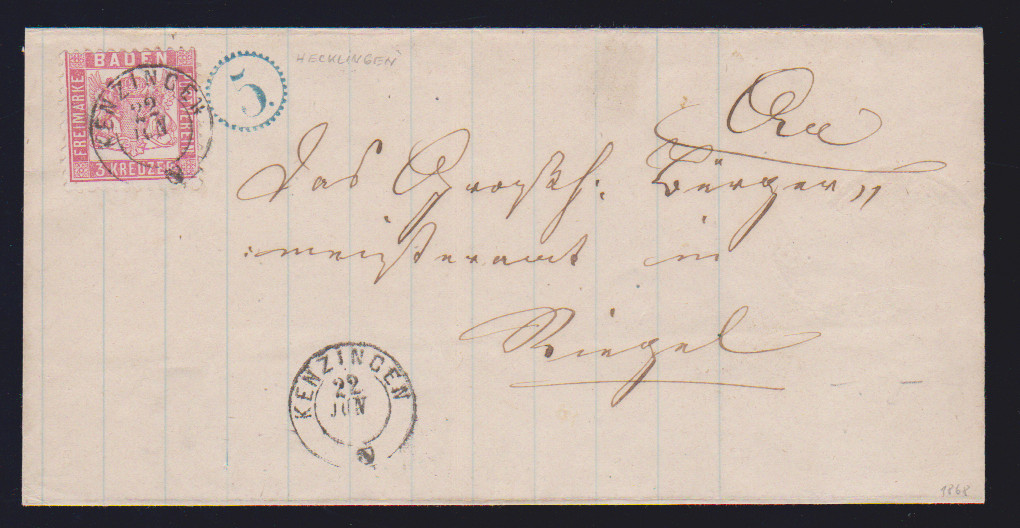 BADEN
FREIMARKE
3 KREUZER
KENZINGEN
22
JUN
5.
HECKLINGEN
An
das Großh. Bürger„
:meisteramt in
Riegel
KENZINGEN
22
JUN
1868